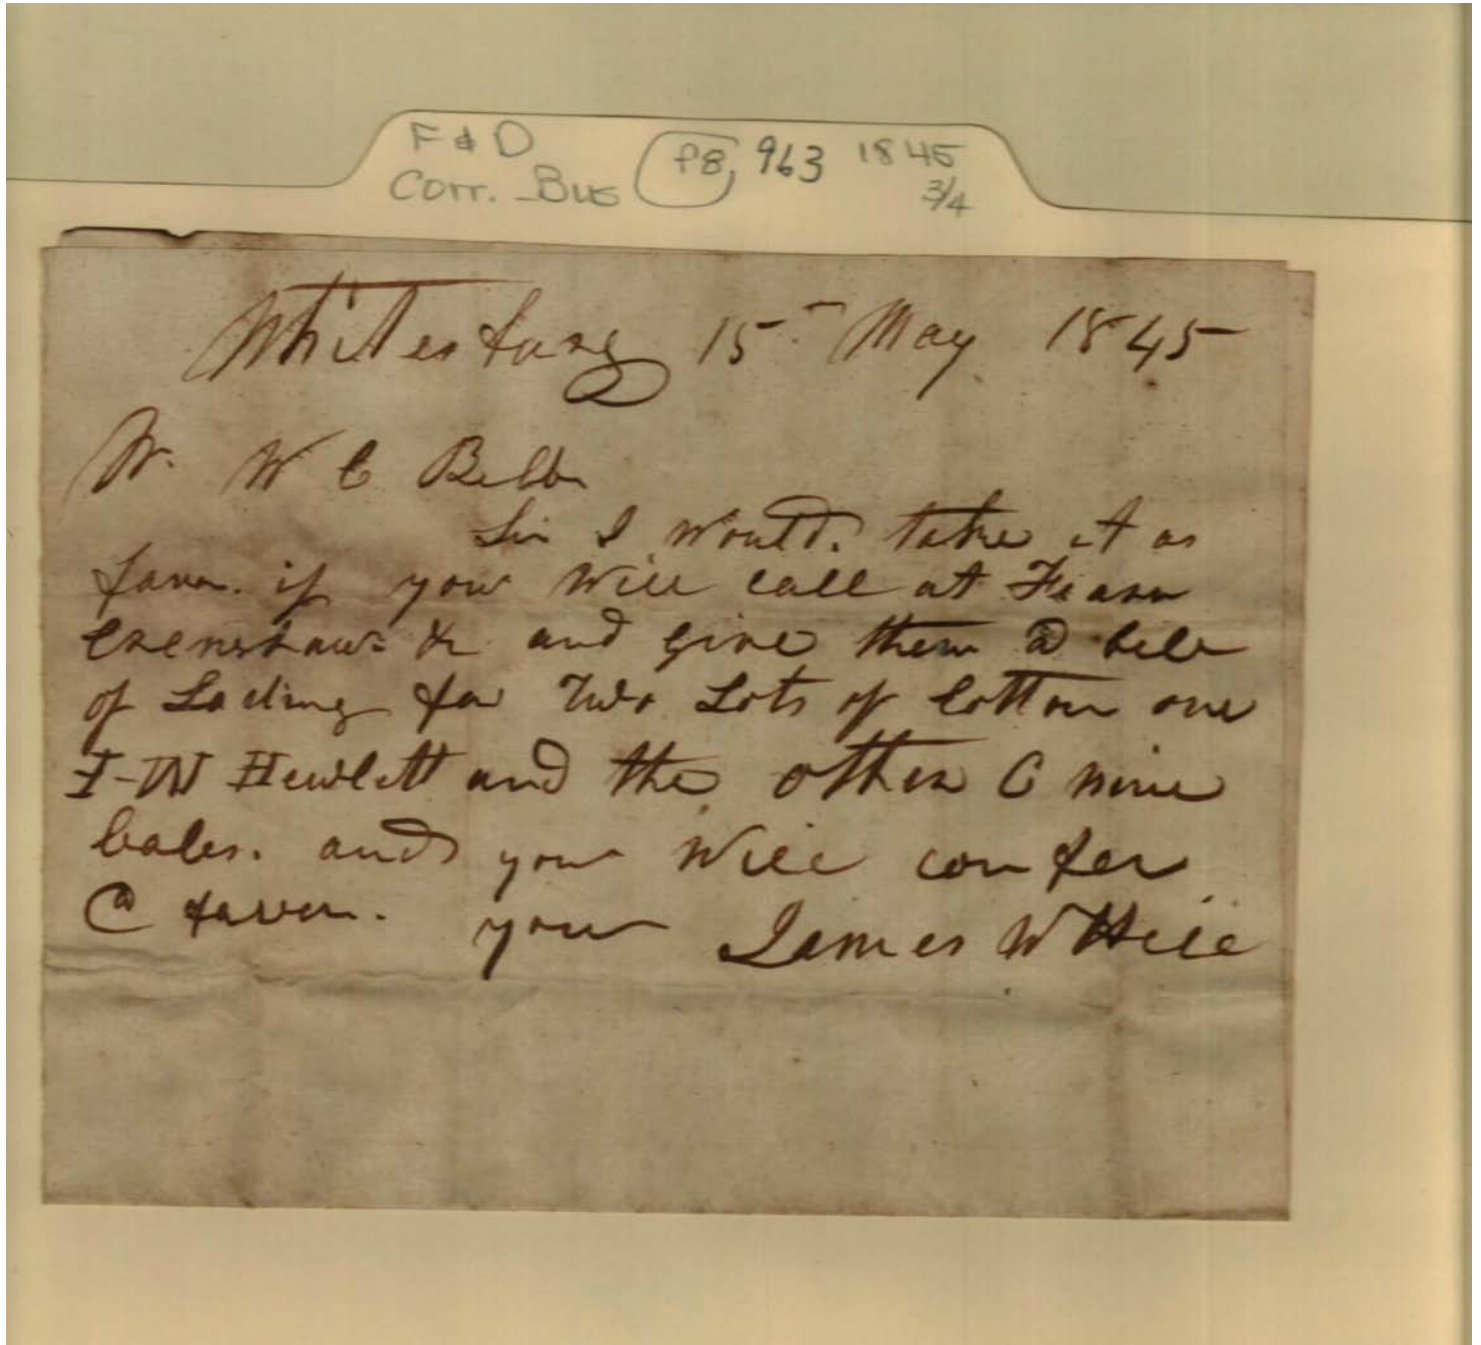 F & D
Corr. - Bus
f8, 963 1845
3/4
Whitesburg 15 May 1845
Mr. W C Bibb
Sir I would take it as
favor. if you will call at Fearn
Crenshaw & and give them a bill
of Lading for Two Lots of Cotton one
I-W Hewlett and the other C nine
bales. and you will confer
a favor. your James W Hill